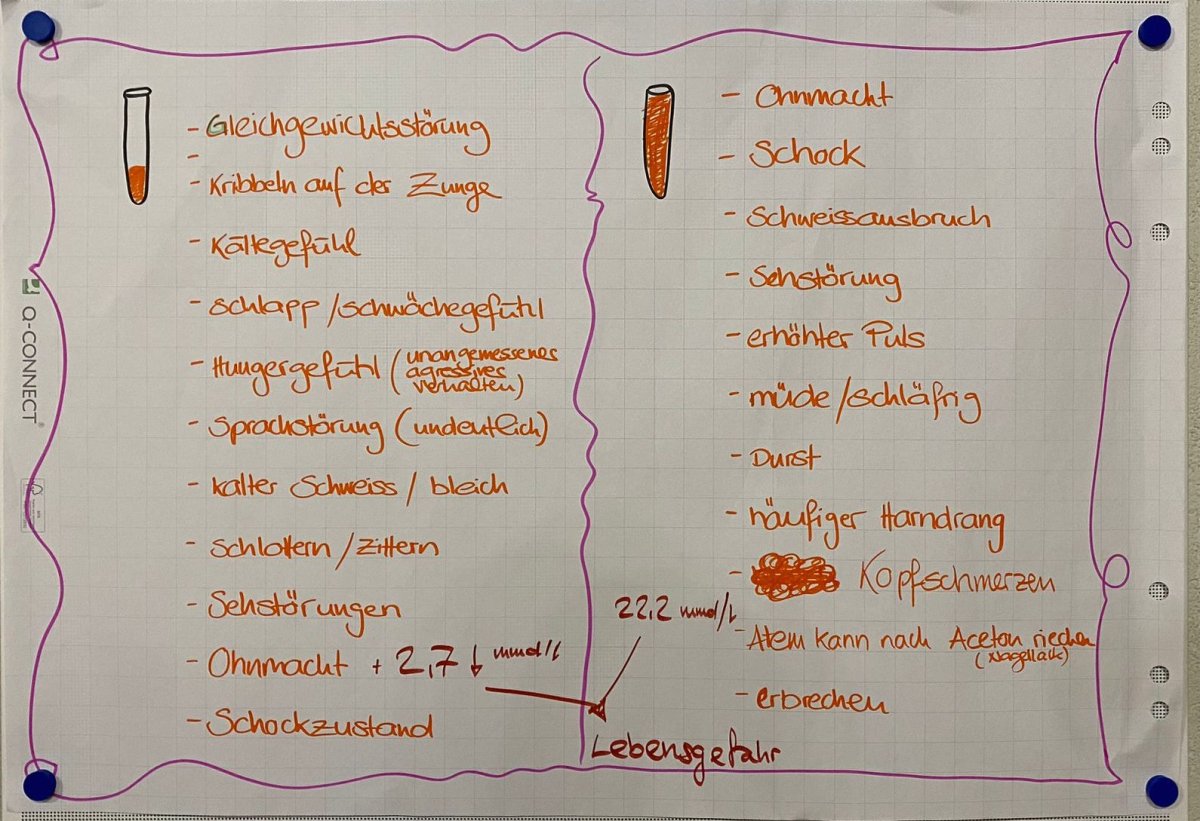 - Gleichgewichtsstörung
-
- Kribbeln auf der Zunge
- Kältegefühl
- schlapp/schwächegefühl
- Hungergefühl (unangemessenes
agressives
verhalten)
- Sprachstörung (undeutlich)
- kalter Schweiss / bleich
- schlottern /zittern
- Sehstörungen
- Ohnmacht + 2,7 ↓ mmol/l
- Schockzustand
- Ohnmacht
- Schock
- Schweissausbruch
- Sehstörung
- erhöhter Puls
- müde/schläfrig
- Durst
- häufiger Harndrang
- Kopfschmerzen
- Atem kann nach Aceton riechen
(Nagellack)
- erbrechen
22,2 mmol/l
Lebensgefahr
Q-CONNECT®